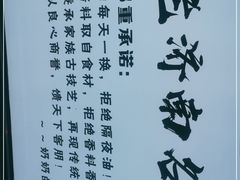 济南名
重承诺：
每天一换，拒绝隔夜油！
料取自食材，拒绝香料香
承家族古技艺；再现传统
以良心商誉，馈天下客朋！
~~奶奶的